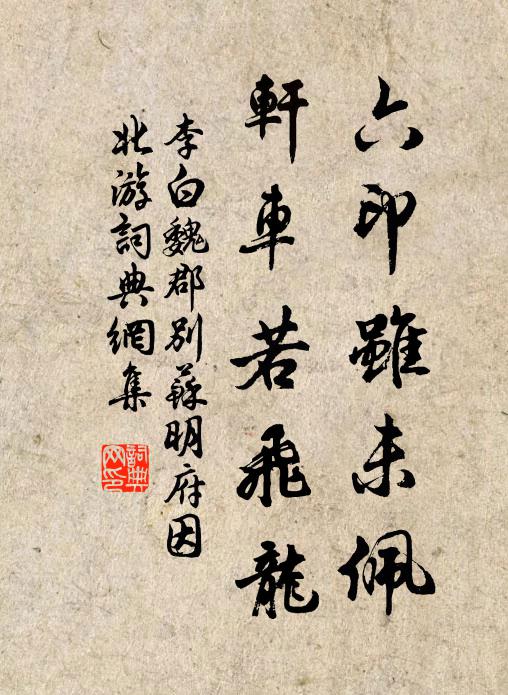 六印雖未佩
軒車若飛龍
李白魏郡别蘇明府因
北游詞典網集
詞典
网印